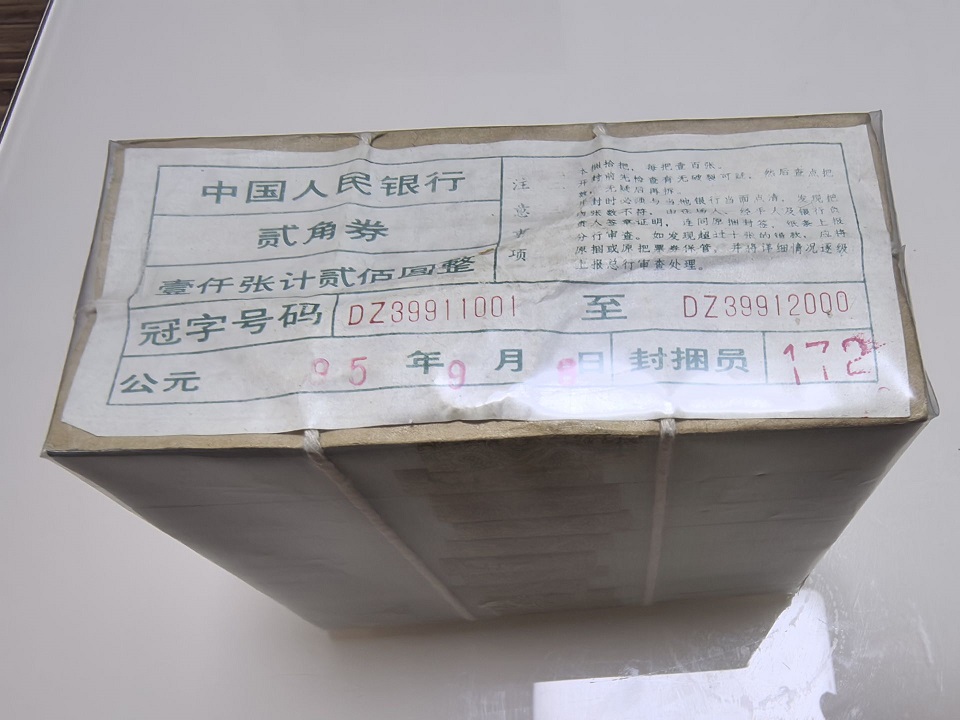 中国人民银行
贰角券
壹仟张计贰佰圆整
注意事项
本捆拾把，每把壹百张。
开封前先检查有无破裂可疑，然后查点把
数，无疑后再拆。
开封时必须与当地银行当面点清，发现把
内张数不符，由在场人、经手人及银行负
责人签章证明，连同原捆封签，纸条上报
分行审查。如发现超过十张的错款，应将
原捆或原把票券保管，并将详细情况逐级
上报总行审查处理。
冠字号码 DZ39911001 至 DZ39912000
公元 95 年 9 月 日 封捆员 172